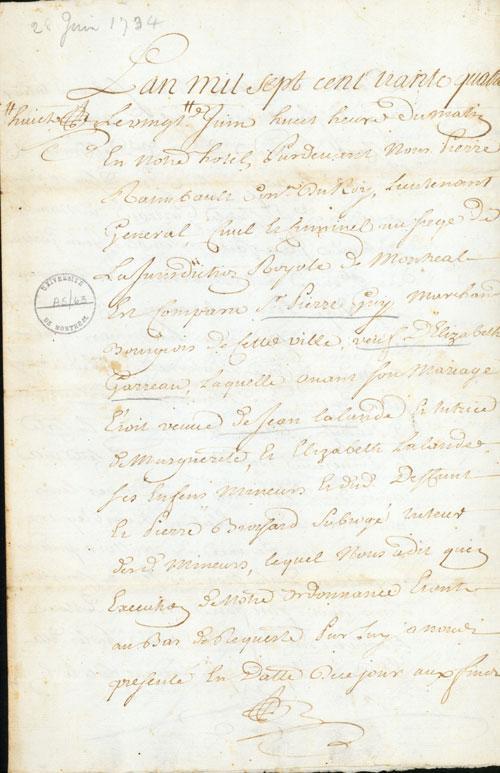 28 Juin 1734
L'an mil sept cent trante quatre
huict Le vingt Juin huict heure du matin
En Notre hotel, Pardevant Nous Pierre
Raimbault Con.er Du Roy, Lieutenant
General, Civil et Criminel au siege de
La Jurisdiction Royale de Montreal
Est Comparu Sr. Pierre Guy Marchand
Bourgeois de Cette ville, veuf D.e Elizabeth
Garreau, Laquelle avant son Mariage
Etoit veuve de Jean Lalande et tutrice
de Marguerite, et Elizabeth Lalande
ses Enfens Mineurs et dud. Deffunt
et Pierre Brossard subrogé tuteur
desd. Mineurs, lequel Nous a dit qu'en
Execution de Notre ordonnance Etante
au Bas de Requeste Par Luy a nous
presenté En Datte De ce jour aux fins
UNIVERSITÉ
DE MONTRÉAL